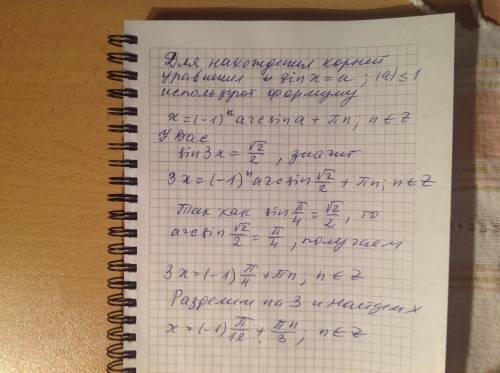 Для нахождения корней
уравнения sin x = a ; |a| ≤ 1
используют формулу
x = (-1)ⁿ arcsin a + πn ; n ∈ Z
У Вас
sin 3x = √2/2 , значит
3x = (-1)ⁿ arcsin √2/2 + πn ; n ∈ Z
Так как sin π/4 = √2/2 , то
arcsin √2/2 = π/4 , получаем
3x = (-1) π/4 + πn , n ∈ Z
Разделим на 3 и найдем x
x = (-1) π/12 + πn/3 ; n ∈ Z